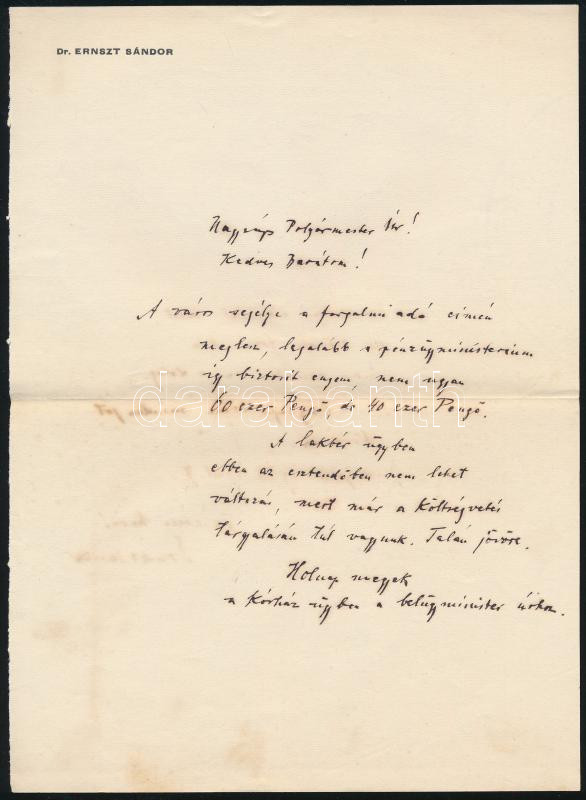 Dr. ERNSZT SÁNDOR
Nagys. Polgármester Úr!
Kedves Barátom!
A város segélye a forgalmi adó címén
meglesz, legalább a pénzügyministerium
így biztosit engem, nem ugyan
60 ezer Pengő, de 40 ezer Pengő.
darabanth
A laktér ügyben
ebben az esztendőben nem lehet
változás, mert már a Költségvetés
tárgyalásán túl vagyunk. Talán jövőre.
Holnap megyek
a Kórház ügyben a belügyminister úrhoz.